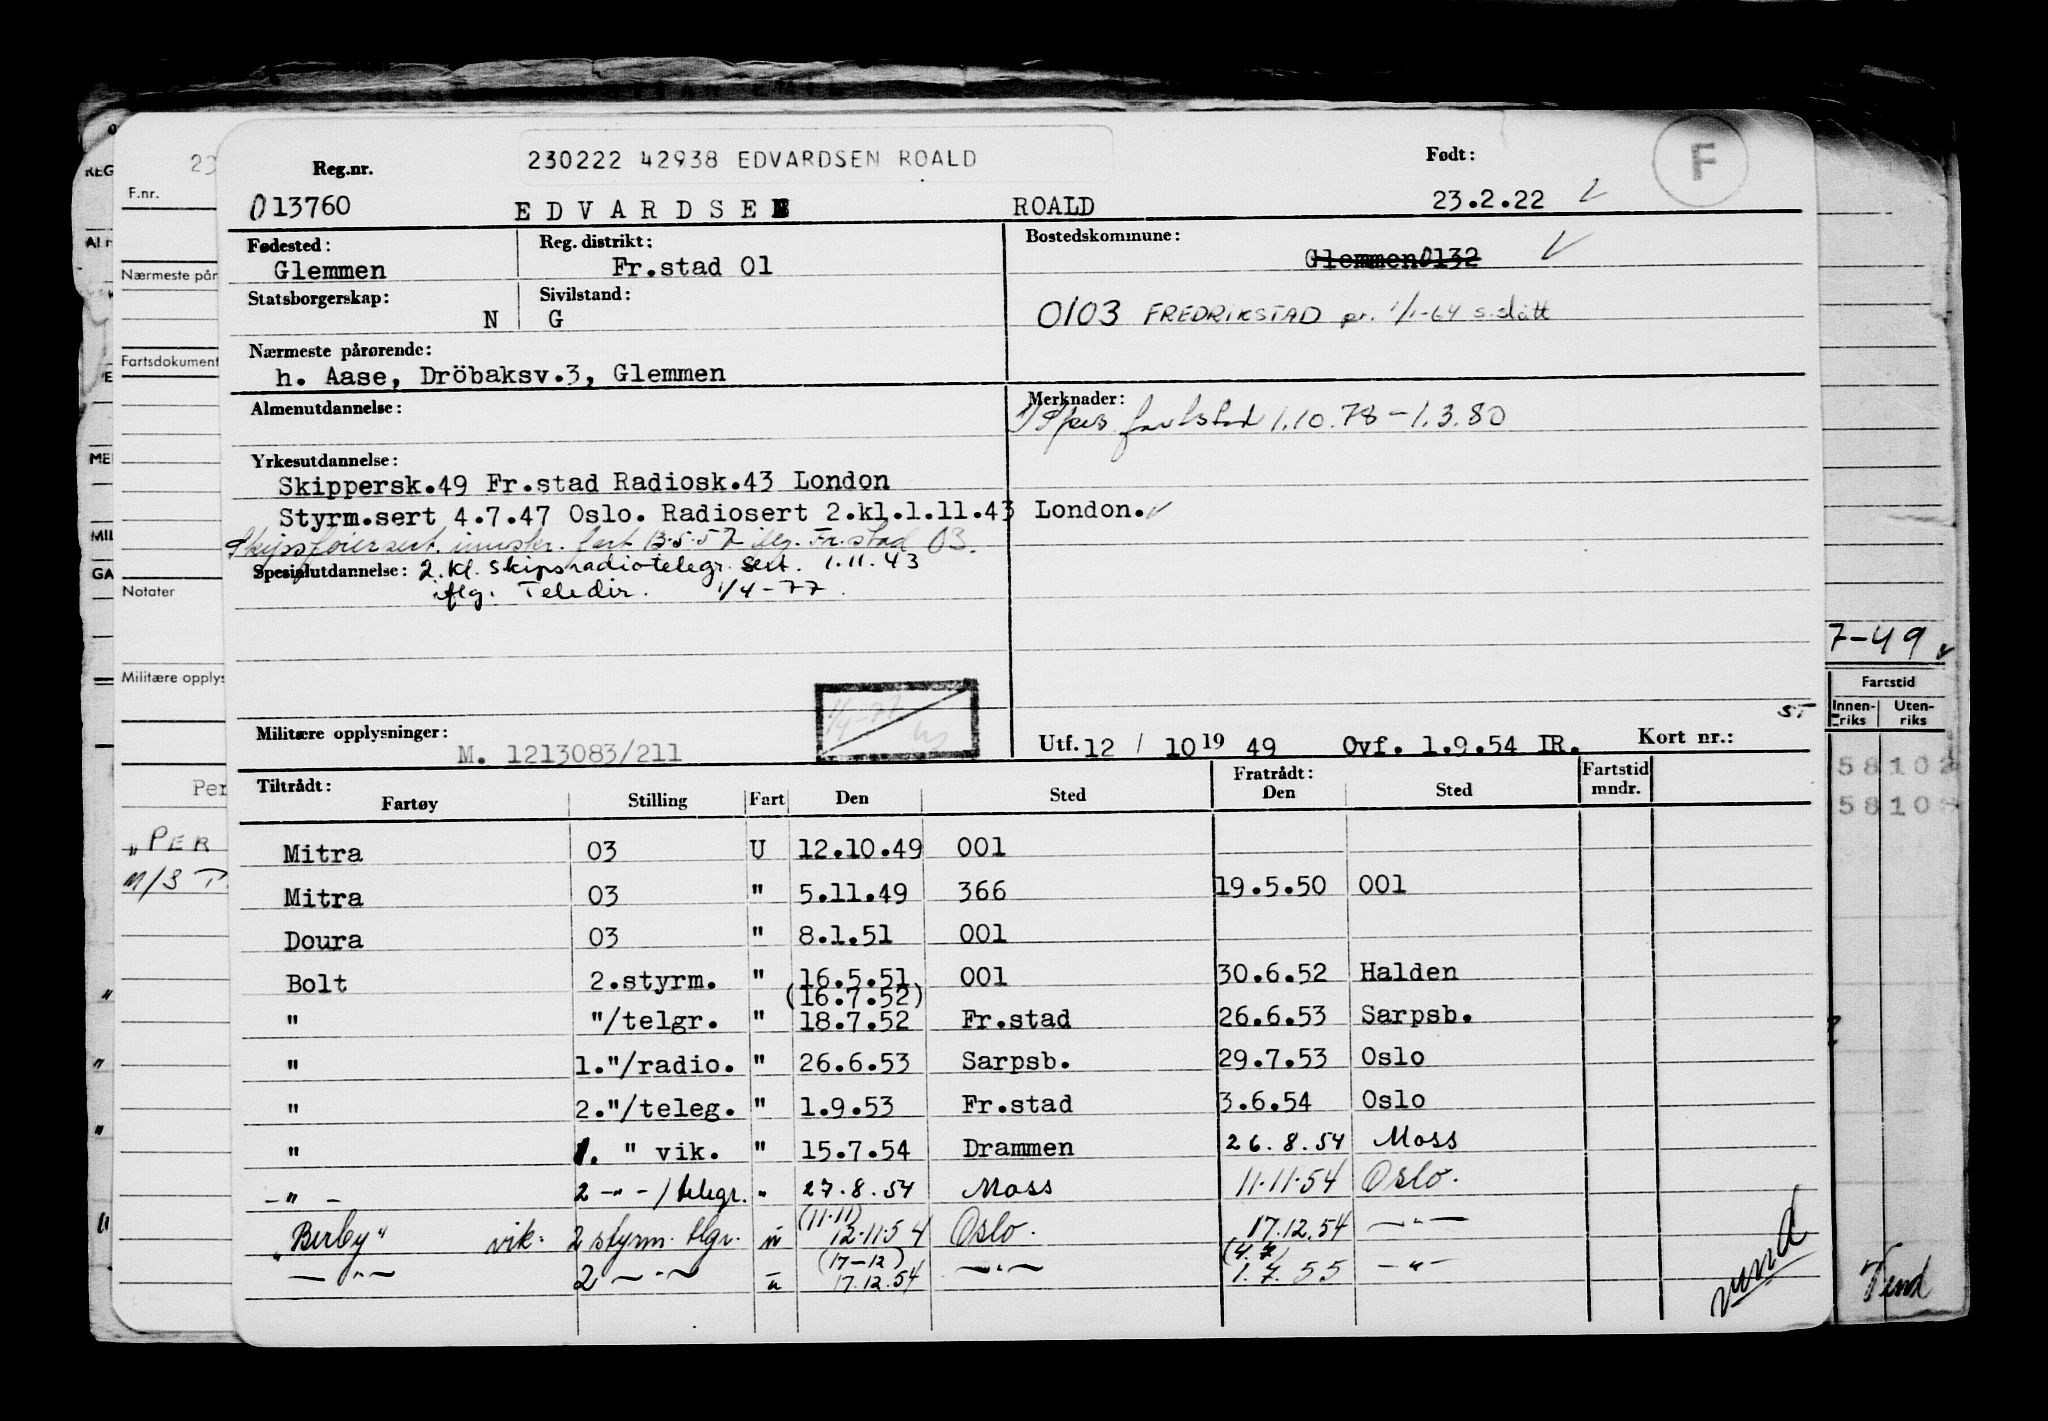 230222 42938 EDVARDSEN ROALD
Reg.nr. Født: F
013760 EDVARDSEN ROALD 23.2.22
Fødested: Reg. distrikt: Bostedskommune:
Glemmen Fr.stad 01 Glemmen 0132
Statsborgerskap: Sivilstand:
N G 0103 FREDRIKSTAD pr. 1/1-64 s.slått
Nærmeste pårørende:
h. Aase, Dröbaksv.3, Glemmen
Almenutdannelse: Merknader:
1.10.78-1.3.80
Yrkesutdannelse:
Skippersk.49 Fr.stad Radiosk.43 London
Styrm.sert 4.7.47 Oslo. Radiosert 2.kl.1.11.43 London.
Skipsførersert. fart 13.5.57 iflg. Fr.stad 03.
Spesialutdannelse: 2.kl. skipsradiotelegr. sert. 1.11.43
iflg. Teledir. 1/4-77
ST
Militære opplysninger: M. 1213083/211 1/4-77
Utf. 12 / 10 19 49 Ovf. 1.9.54 IR. Kort nr.:
Tiltrådt: Fratrådt: Fartstid
Fartøy Stilling Fart Den Sted Den Sted mndr.
Mitra 03 U 12.10.49 001
Mitra 03 " 5.11.49 366 19.5.50 001
Doura 03 " 8.1.51 001
Bolt 2.styrm. " 16.5.51 001 30.6.52 Halden
(16.7.52)
" "/telgr. " 18.7.52 Fr.stad 26.6.53 Sarpsb.
" 1."/radio. " 26.6.53 Sarpsb. 29.7.53 Oslo
" 2."/teleg. " 1.9.53 Fr.stad 3.6.54 Oslo
" 1. " vik. " 15.7.54 Drammen 26.8.54 Moss
-"- 2 -"-/telegr. " 27.8.54 Moss 11.11.54 Oslo.
(11.11)
"Berby" vik. 2 styrm. tlgr. " 12.11.54 Oslo. 17.12.54 -"-
(17-12) (4.7)
-"- 2 -"- " 17.12.54 -"- 1.7.55 -"-
vend
REG
F.nr.
Nærmeste pår
Fartsdokument
ME
MIL
GA
Notater
Militære opplys
Per
"PER
M/S T
7-49
Fartstid
Innen-riks Uten-riks
58102
5810
Vend